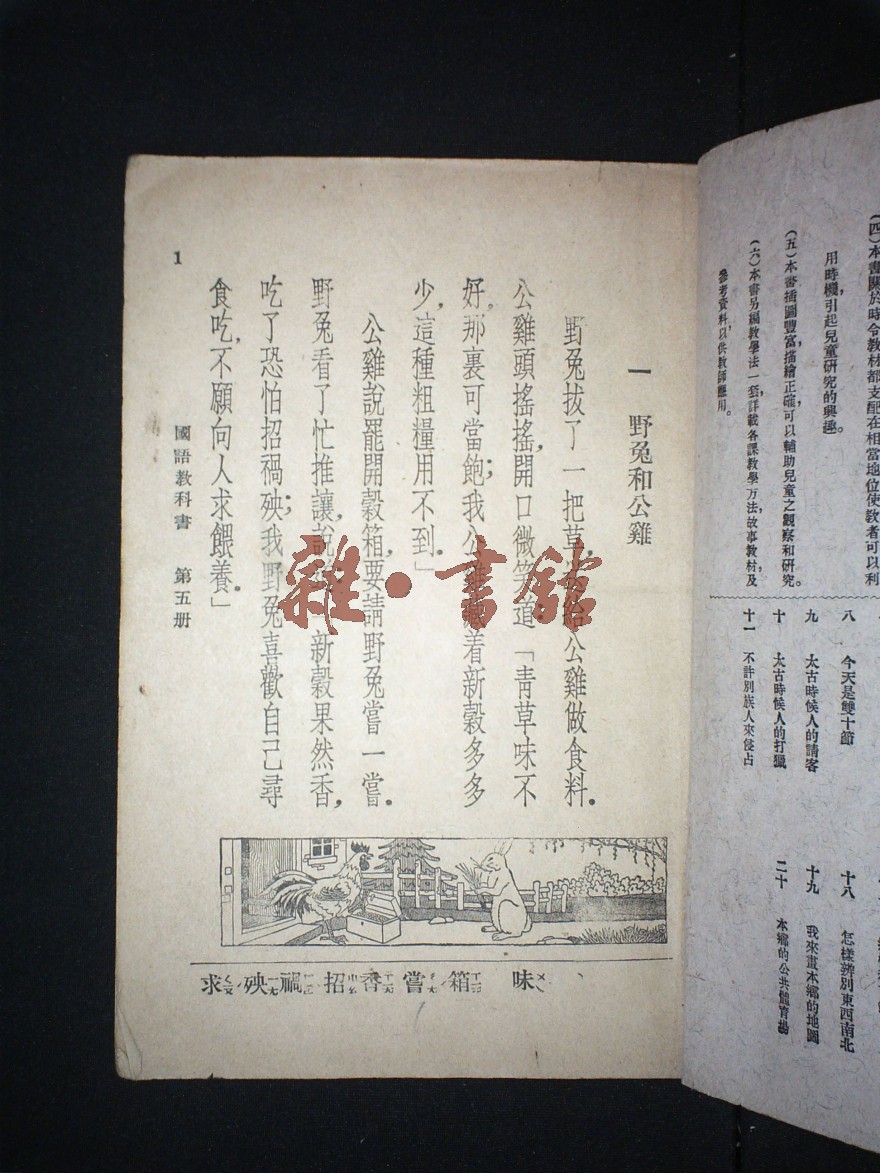 (四)本書關於時令教材都支配在相當地位使教者可以利
用時機,引起兒童研究的興趣。
(五)本書插圖豐富,描繪正確,可以輔助兒童之觀察和研究。
(六)本書另編教學法一套,詳載各課教學方法,故事教材,及
參考資料,以供教師應用。
八 今天是雙十節
九 太古時候人的請客
十 太古時候人的打獵
十一 不許別族人來侵占
十八 怎樣辨別東西南北
十九 我來畫本鄉的地圖
二十 本鄉的公共體育場
一 野兔和公雞
野兔拔了一把草,公雞做食料。
公雞頭搖搖,開口微笑道:「青草味不
好,那裏可當飽;我公雞藏着新穀多多
少,這種粗糧用不到。」
公雞說罷開穀箱,要請野兔嘗一嘗。
野兔看了忙推讓,說道:「新穀果然香,
吃了恐怕招禍殃;我野兔喜歡自己尋
食吃,不願向人求餵養。」
國語教科書 第五册
1
味 箱 嘗 香 招 禍 殃 求
雜·書館